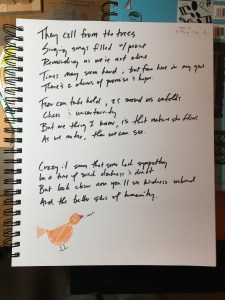 They call from the trees
Singing songs filled w/ praise
Reminding us we're not alone
Times may seem hard, but from here in my yard
There's always promise & hope.
Fear can take hold, as around us unfolds
Chaos & uncertainty
But one thing I know, is that nature she flows
As we notice, then we can see.
Crazy it seems that some lack sympathy
In a time of such darkness & doubt
But look close now you'll see kindness
And the better sides of humanity.